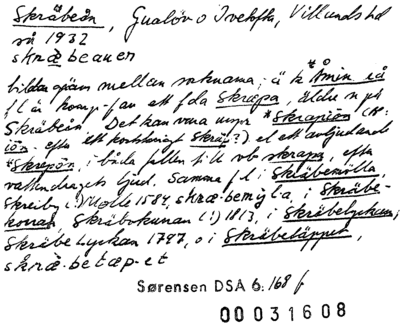 Skräbeån, Gualöv o Ivetofta, Villands hd
så 1932
skræbeaen
bildar gräns mellan socknarna; ä k Åmin
komp. f da Skræpa, äldre n på
Skräbeån Det kan vara urspr *Skrapiōn
efter ett
*Skrepōn, i båda fallen till vb skrapa, efter
vattendragets ljud. Samma f l i Skräbemölla,
Skreiby Mølle 1584, skræ·bemöla, i Skräbe-
korran, Skräbokunan (!) 1813, i Skräbelyckan;
Skräbe Lyckan 1797, o i Skräbetäppet,
skræ·betæp·et
Sørensen DSA 6. 168 f
00031608